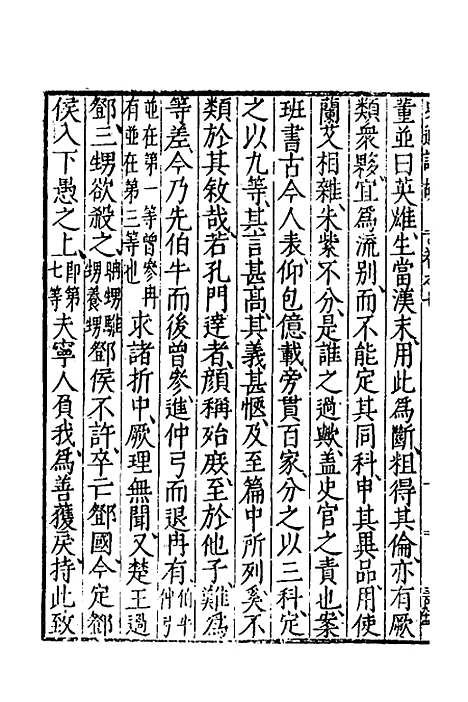 董並曰英雄生當漢末用此爲斷粗得其倫亦有厥
類衆夥宜爲流別而不能定其同科申其異品用使
蘭艾相雜朱紫不分是誰之過歟蓋史官之責也案
班書古今人表仰包億載旁貫百家分之以三科定
之以九等其言甚高其義甚愜及至篇中所列奚不
類於其敘哉若孔門達者顔稱殆庶至於他子難爲
等差今乃先伯牛而後曾參進仲弓而退冉有伯牛仲弓
並在第一等曾參冉有並在第三等也求諸折中厥理無聞又楚王過
鄧三甥欲殺之聃甥騅甥養甥鄧侯不許卒亡鄧國今定鄧
侯入下愚之上即第七等夫寧人負我爲善獲戾持此致